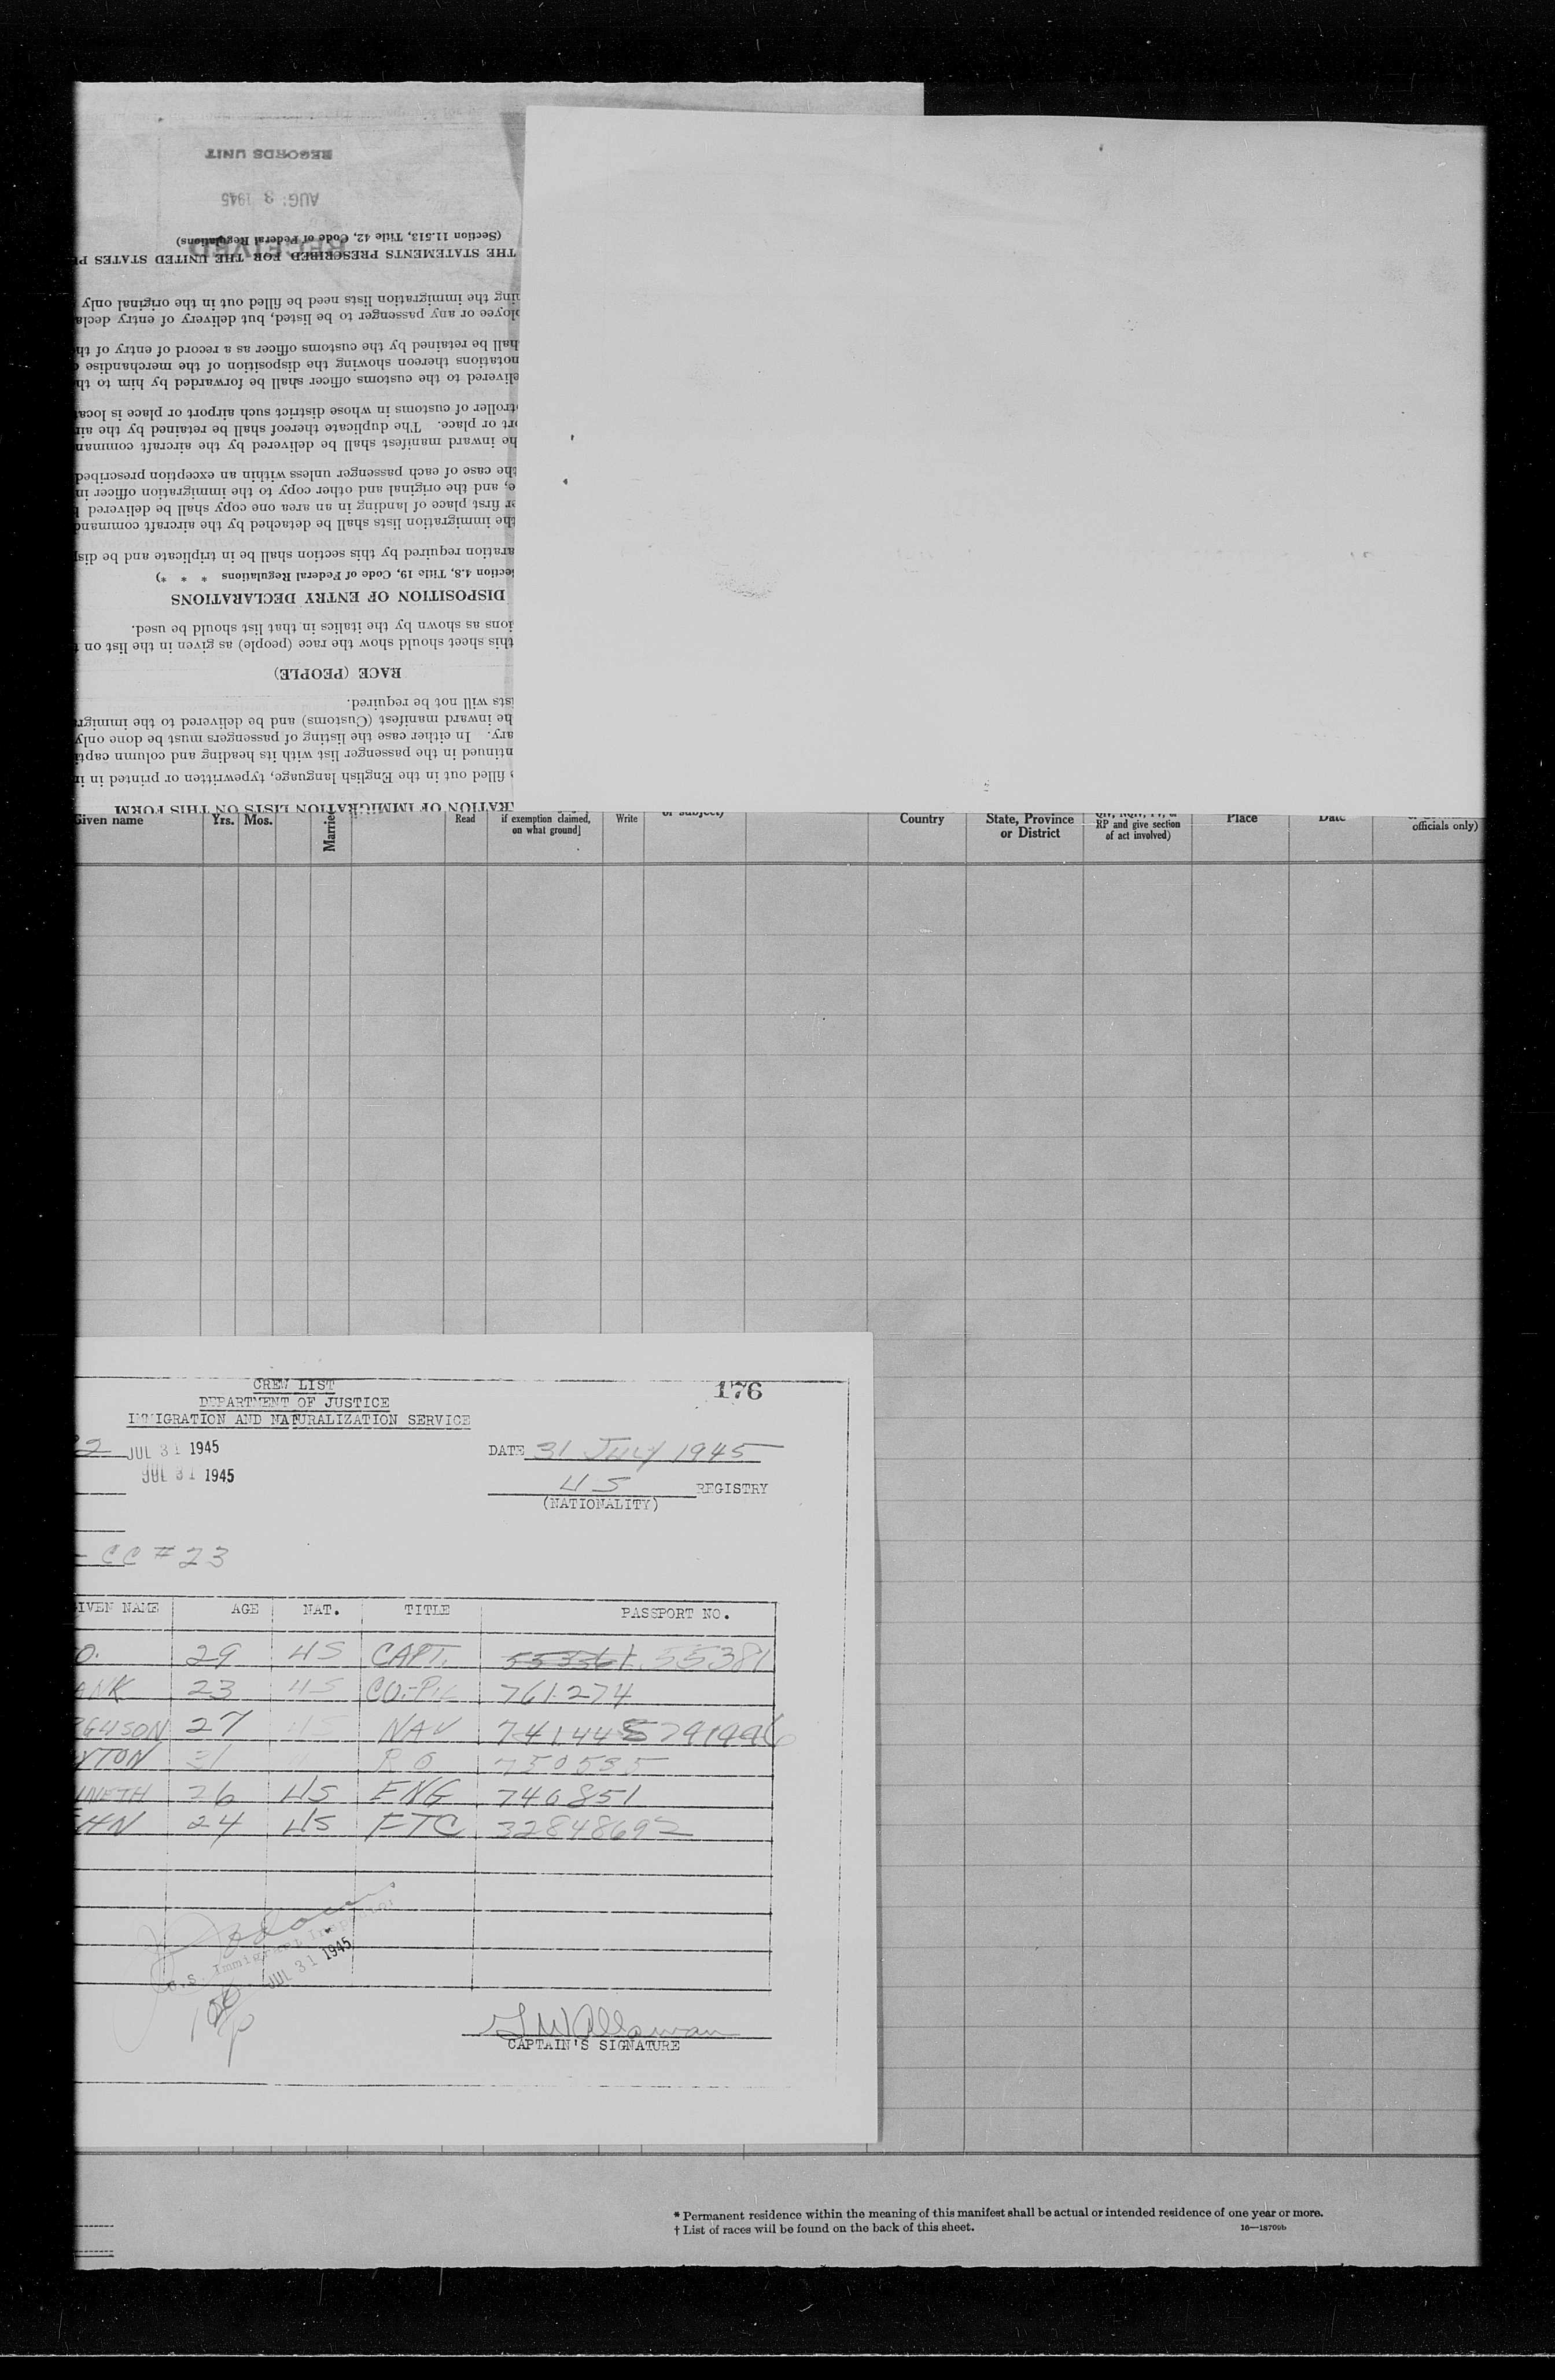 RECORDS UNIT
AUG 3 1945
RECEIVED
(Section 11.513, Title 42, Code of Federal Regulations)
THE STATEMENTS PRESCRIBED FOR THE UNITED STATES
the immigration lists need be filled out in the original only
or any passenger to be listed, but delivery of entry
be retained by the customs officer as a record of entry of
notations thereon showing the disposition of the merchandise
to the customs officer shall be forwarded by him to
of customs in whose district such airport or place is
or place. The duplicate thereof shall be retained by the
inward manifest shall be delivered by the aircraft
the case of each passenger unless within an exception prescribed
and the original and other copy to the immigration officer in
first place of landing in an area one copy shall be delivered
the immigration lists shall be detached by the aircraft
required by this section shall be in triplicate and be
4.8, Title 19, Code of Federal Regulations * * *)
DISPOSITION OF ENTRY DECLARATIONS
as shown by the italics in that list should be used.
this sheet should show the race (people) as given in the list on
RACE (PEOPLE)
will not be required.
inward manifest (Customs) and be delivered to the
In either case the listing of passengers must be done only
in the passenger list with its heading and column
filled out in the English language, typewritten or printed in
OF IMMIGRATION LISTS ON THIS FORM
Given name Yrs. Mos. Married Read if exemption claimed, on what ground] Write or subject) Country State, Province or District RP and give section of act involved) Place Date officials only)
CREW LIST
176
DEPARTMENT OF JUSTICE
IMMIGRATION AND NATURALIZATION SERVICE
JUL 31 1945
DATE 31 JULY 1945
JUL 31 1945
US REGISTRY
(NATIONALITY)
CC # 23
GIVEN NAME AGE NAT. TITLE PASSPORT NO.
O. 29 US CAPT. 55381
ANK 23 US CO-PIL 761274
GUSON 27 US NAV
YTON 31 RO 750535
NNETH 26 US ENG 740851
HN 24 US FTC 32848692
U.S. Immigrant Inspector
JUL 31 1945
CAPTAIN'S SIGNATURE
* Permanent residence within the meaning of this manifest shall be actual or intended residence of one year or more.
† List of races will be found on the back of this sheet.
16—18709b